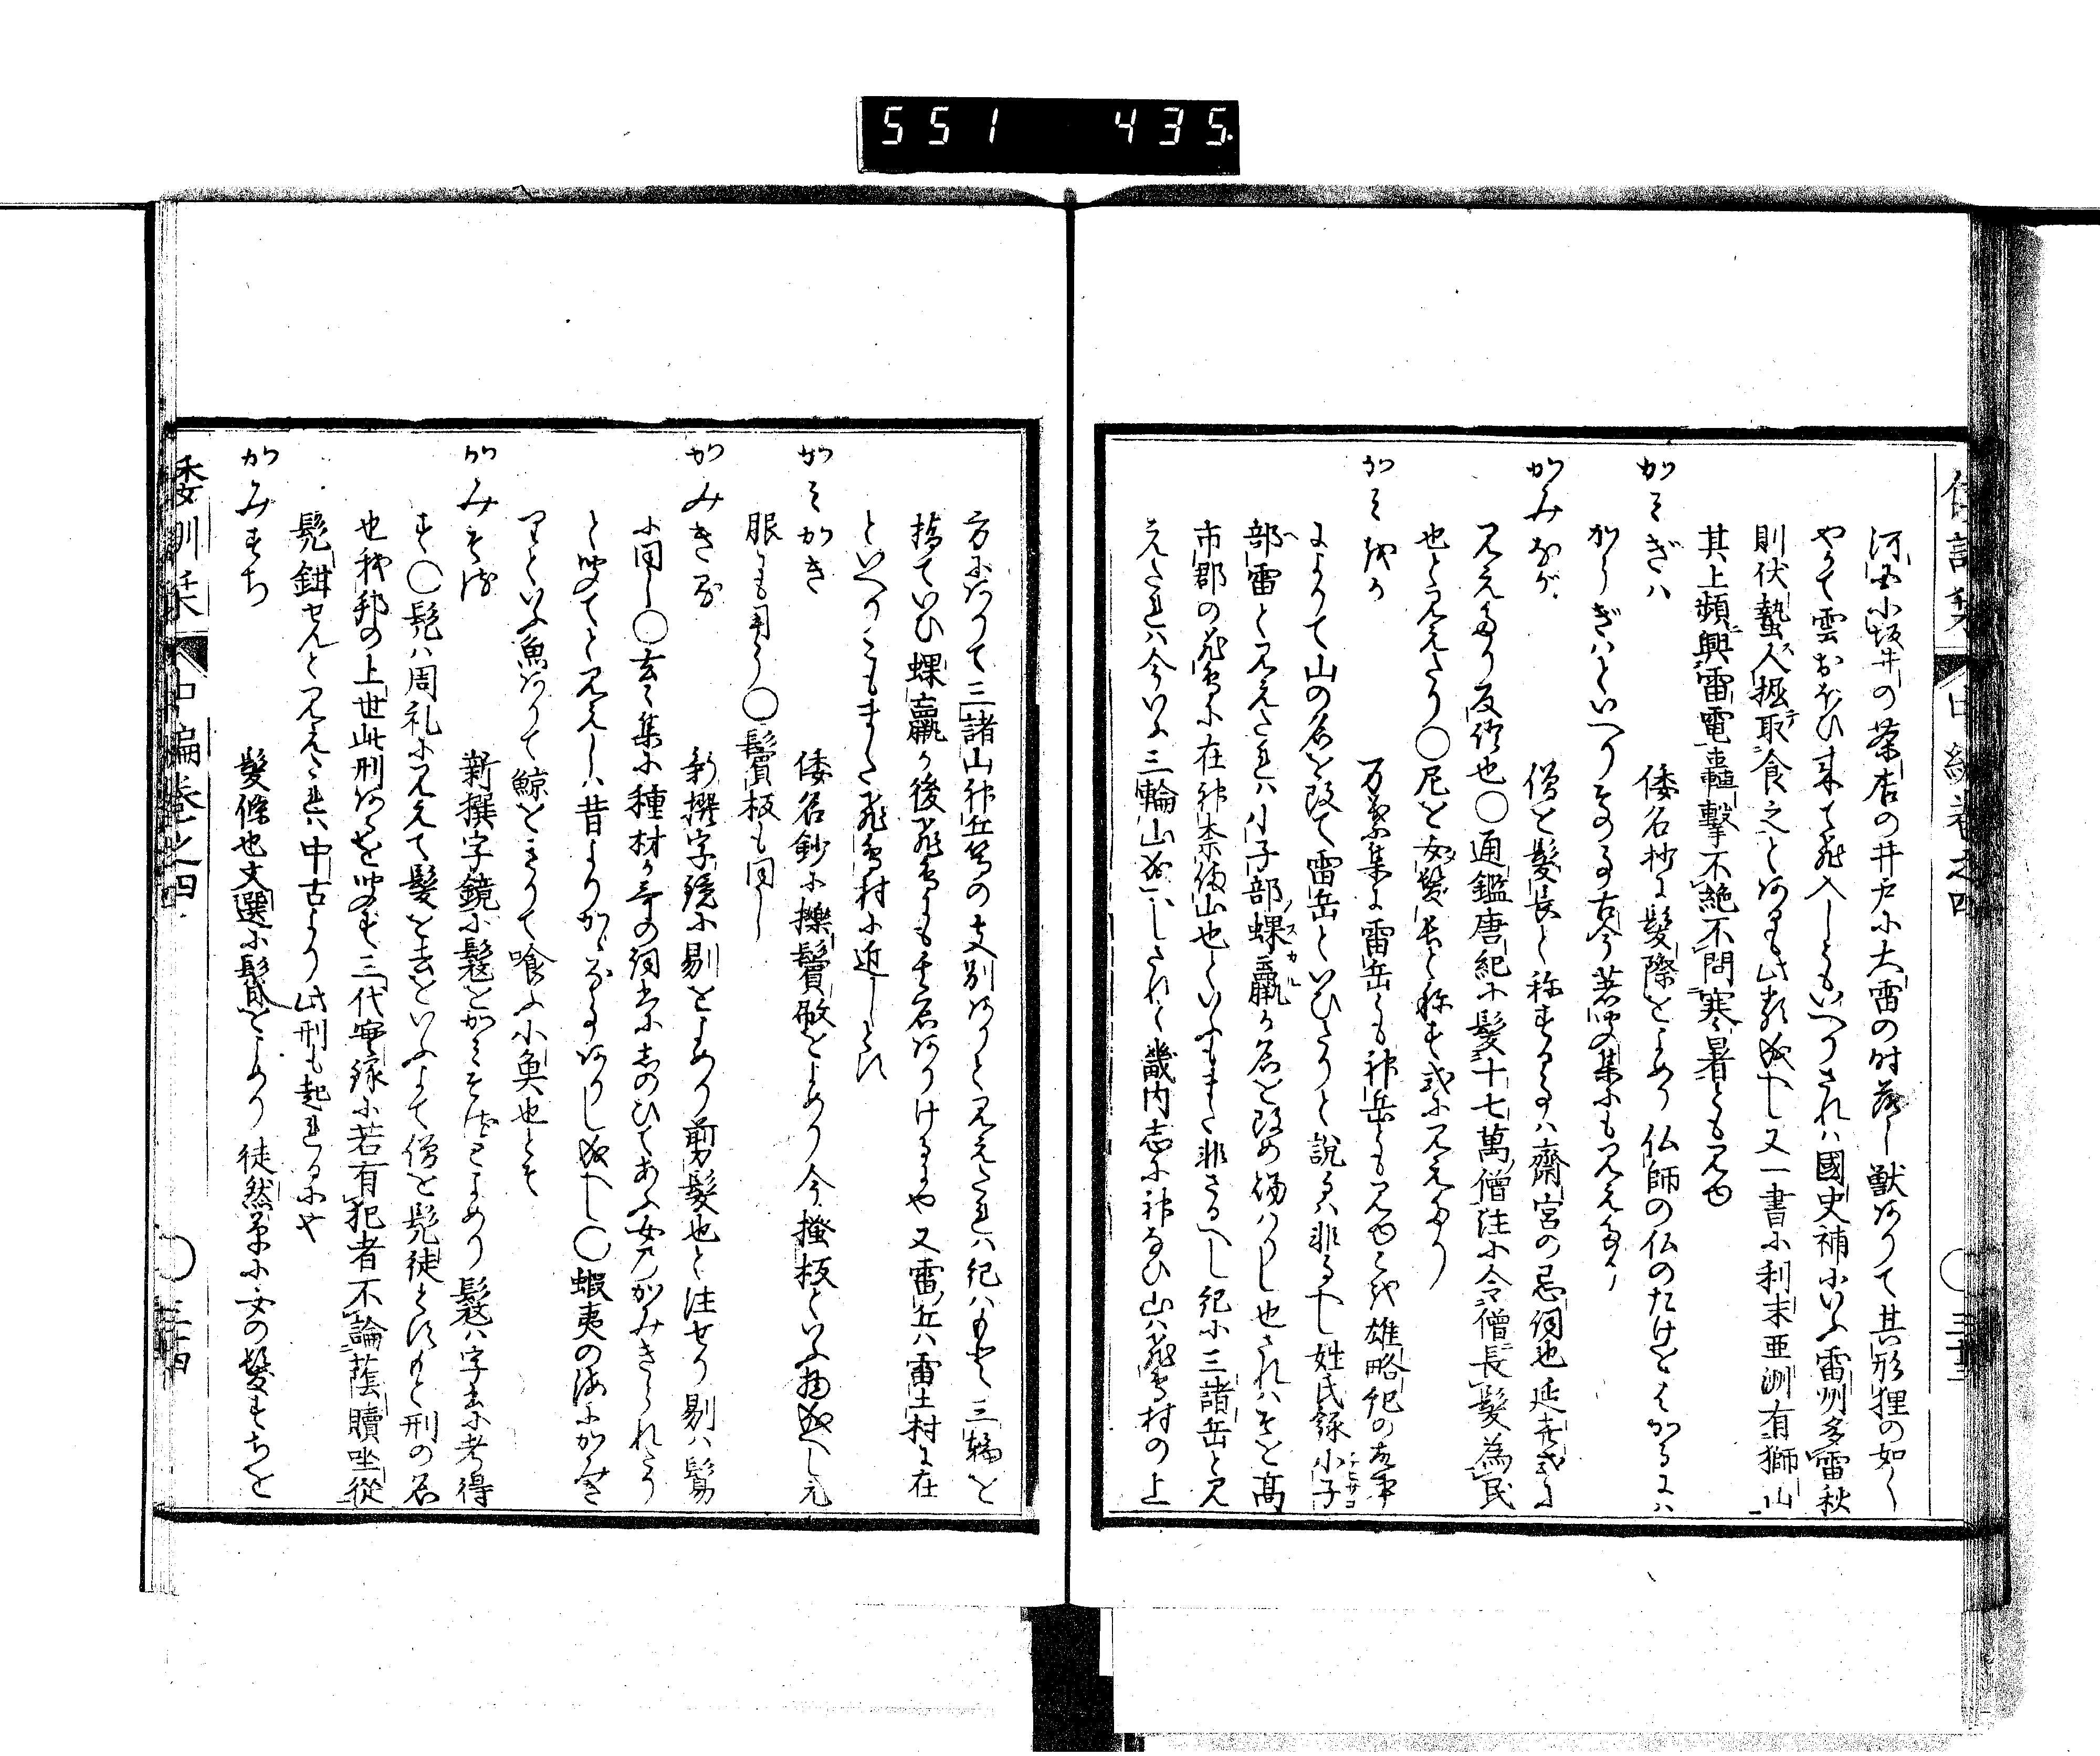 551 435
河国小坂井の茶店の井戸に大雷の時落し獣ありて其形狸の如く
やかて雲おほひ来て飛入しともいへりされハ國史補にいふ雷州多雷秋
則伏蟄人掘取食之とあるも此類成へし又一書に利未亜洲有獅山
其上頻興雷電轟撃不絶不問寒暑とも見ゆ
かミぎハ 倭名抄に髪際をよめり仏師の仏のたけをはかるにハ
かうぎハといへりその事古今著聞集にも見えたり
かみながˊ 僧を髪長と称するハ齋宮の忌詞也延喜式に
見えたり反語也〇通鑑唐紀に髪十七萬僧注に令僧長髪為民
也と見えたり〇尼を女髪長と称す式に見えたり
かミをか 万葉集に雷岳とも神岳とも見ゆこハ雄略紀の故事
によりて山の名を改て雷岳といひたりと説るハ非るへし姓氏録小子
部雷と見えたれハ小子部蜾蠃か名を改め賜ハりし也されハそを高
市郡の飛鳥に在神奈備山也といふもまた非さるへし紀に三諸岳と見
えたれハ今いふ三輪山成へしされと畿内志に神なひ山ハ飛鳥村の上
方にありて三諸山神丘等の支別ありと見えたれハ紀ハもと三輪を
指ていひ蜾蠃か後飛鳥にも居名ありけるにや又雷丘ハ雷土村に在
といへりこもまた飛鳥村に近しとひ
かミかき 倭名鈔に擽鬢をよめり今掻板といふ物成へし元
服にも用う〇鬢板も同し
かみきる 新撰字鏡に剔をよめり剪髪也と注せり剔ハ鬄
に同し〇玄々集に種材か哥の詞書にしのひてあふ女のかみきられたり
と聞てと見えしハ昔よりかゝる事ありし成へし〇蝦夷の海にかみき
りといふ魚ありて鯨をきりて喰ふ小魚也とそ
かみそる 新撰字鏡に鬀をかミそるとよめり鬀ハ字書に考得
す〇髡ハ周礼に見えて髪を去をいふよて僧を髡徒といひもと刑の名
也我邦の上世此刑あるを聞す三代實録に若有犯者不論蔭贖坐從
髡鉗せんと見えたれハ中古より此刑も起れるにや
かみすち 髪條也文選に鬢をよめり徒然草に女の髪すちを
倭訓栞 中編巻之四 三十四